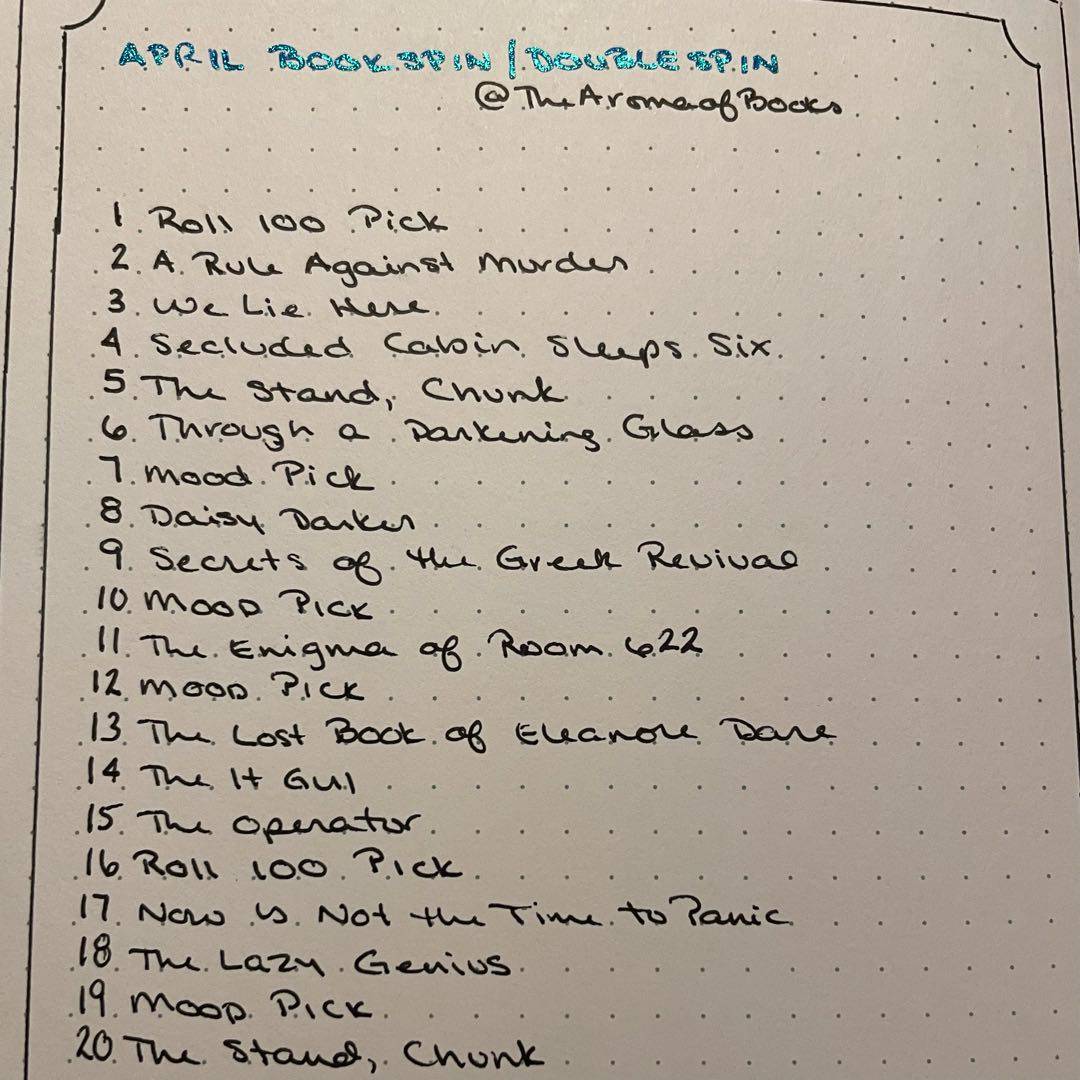 APRIL BOOKSPIN/DOUBLESPIN
@TheAromaofBooks
1. Roll 100 Pick
2. A Rule Against Murder
3. We Lie Here
4. Secluded Cabin Sleeps Six
5. The Stand, Chunk
6. Through a Darkening Glass
7. Mood Pick
8. Daisy Darker
9. Secrets of the Greek Revival
10. Mood Pick
11. The Enigma of Room 622
12. Mood Pick
13. The Lost Book of Eleanore Dare
14. The It Girl
15. The Operator
16. Roll 100 Pick
17. Now is Not the Time to Panic
18. The Lazy Genius
19. Mood Pick
20. The Stand, Chunk